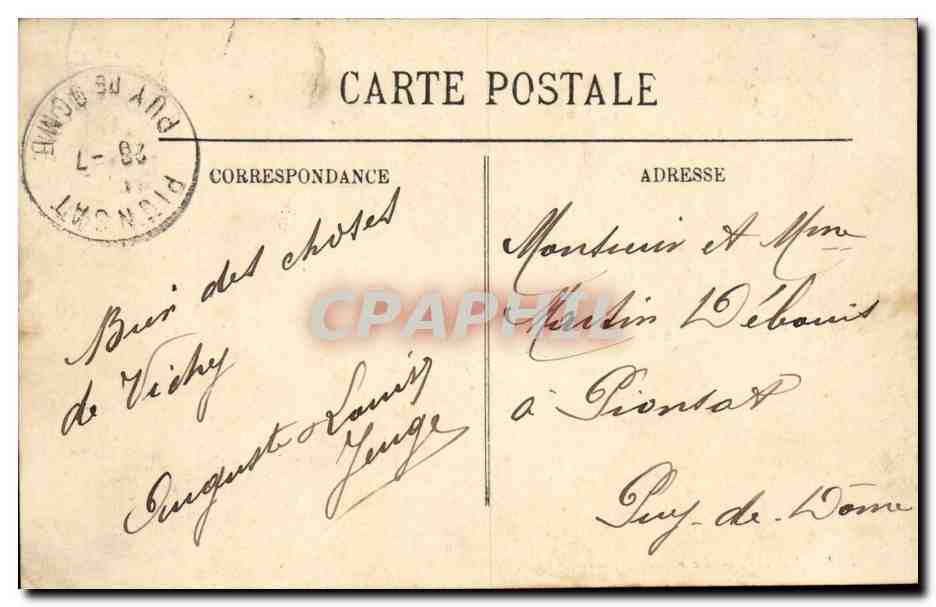 CARTE POSTALE
PIONSAT
28 -7
PUY DE DOME
CORRESPONDANCE
Bien des choses
de Vichy
Auguste Louis
ADRESSE
Monsieur et Mme
Martin Débouis
à Pionsat
Puy-de-Dôme
CPAPHIL